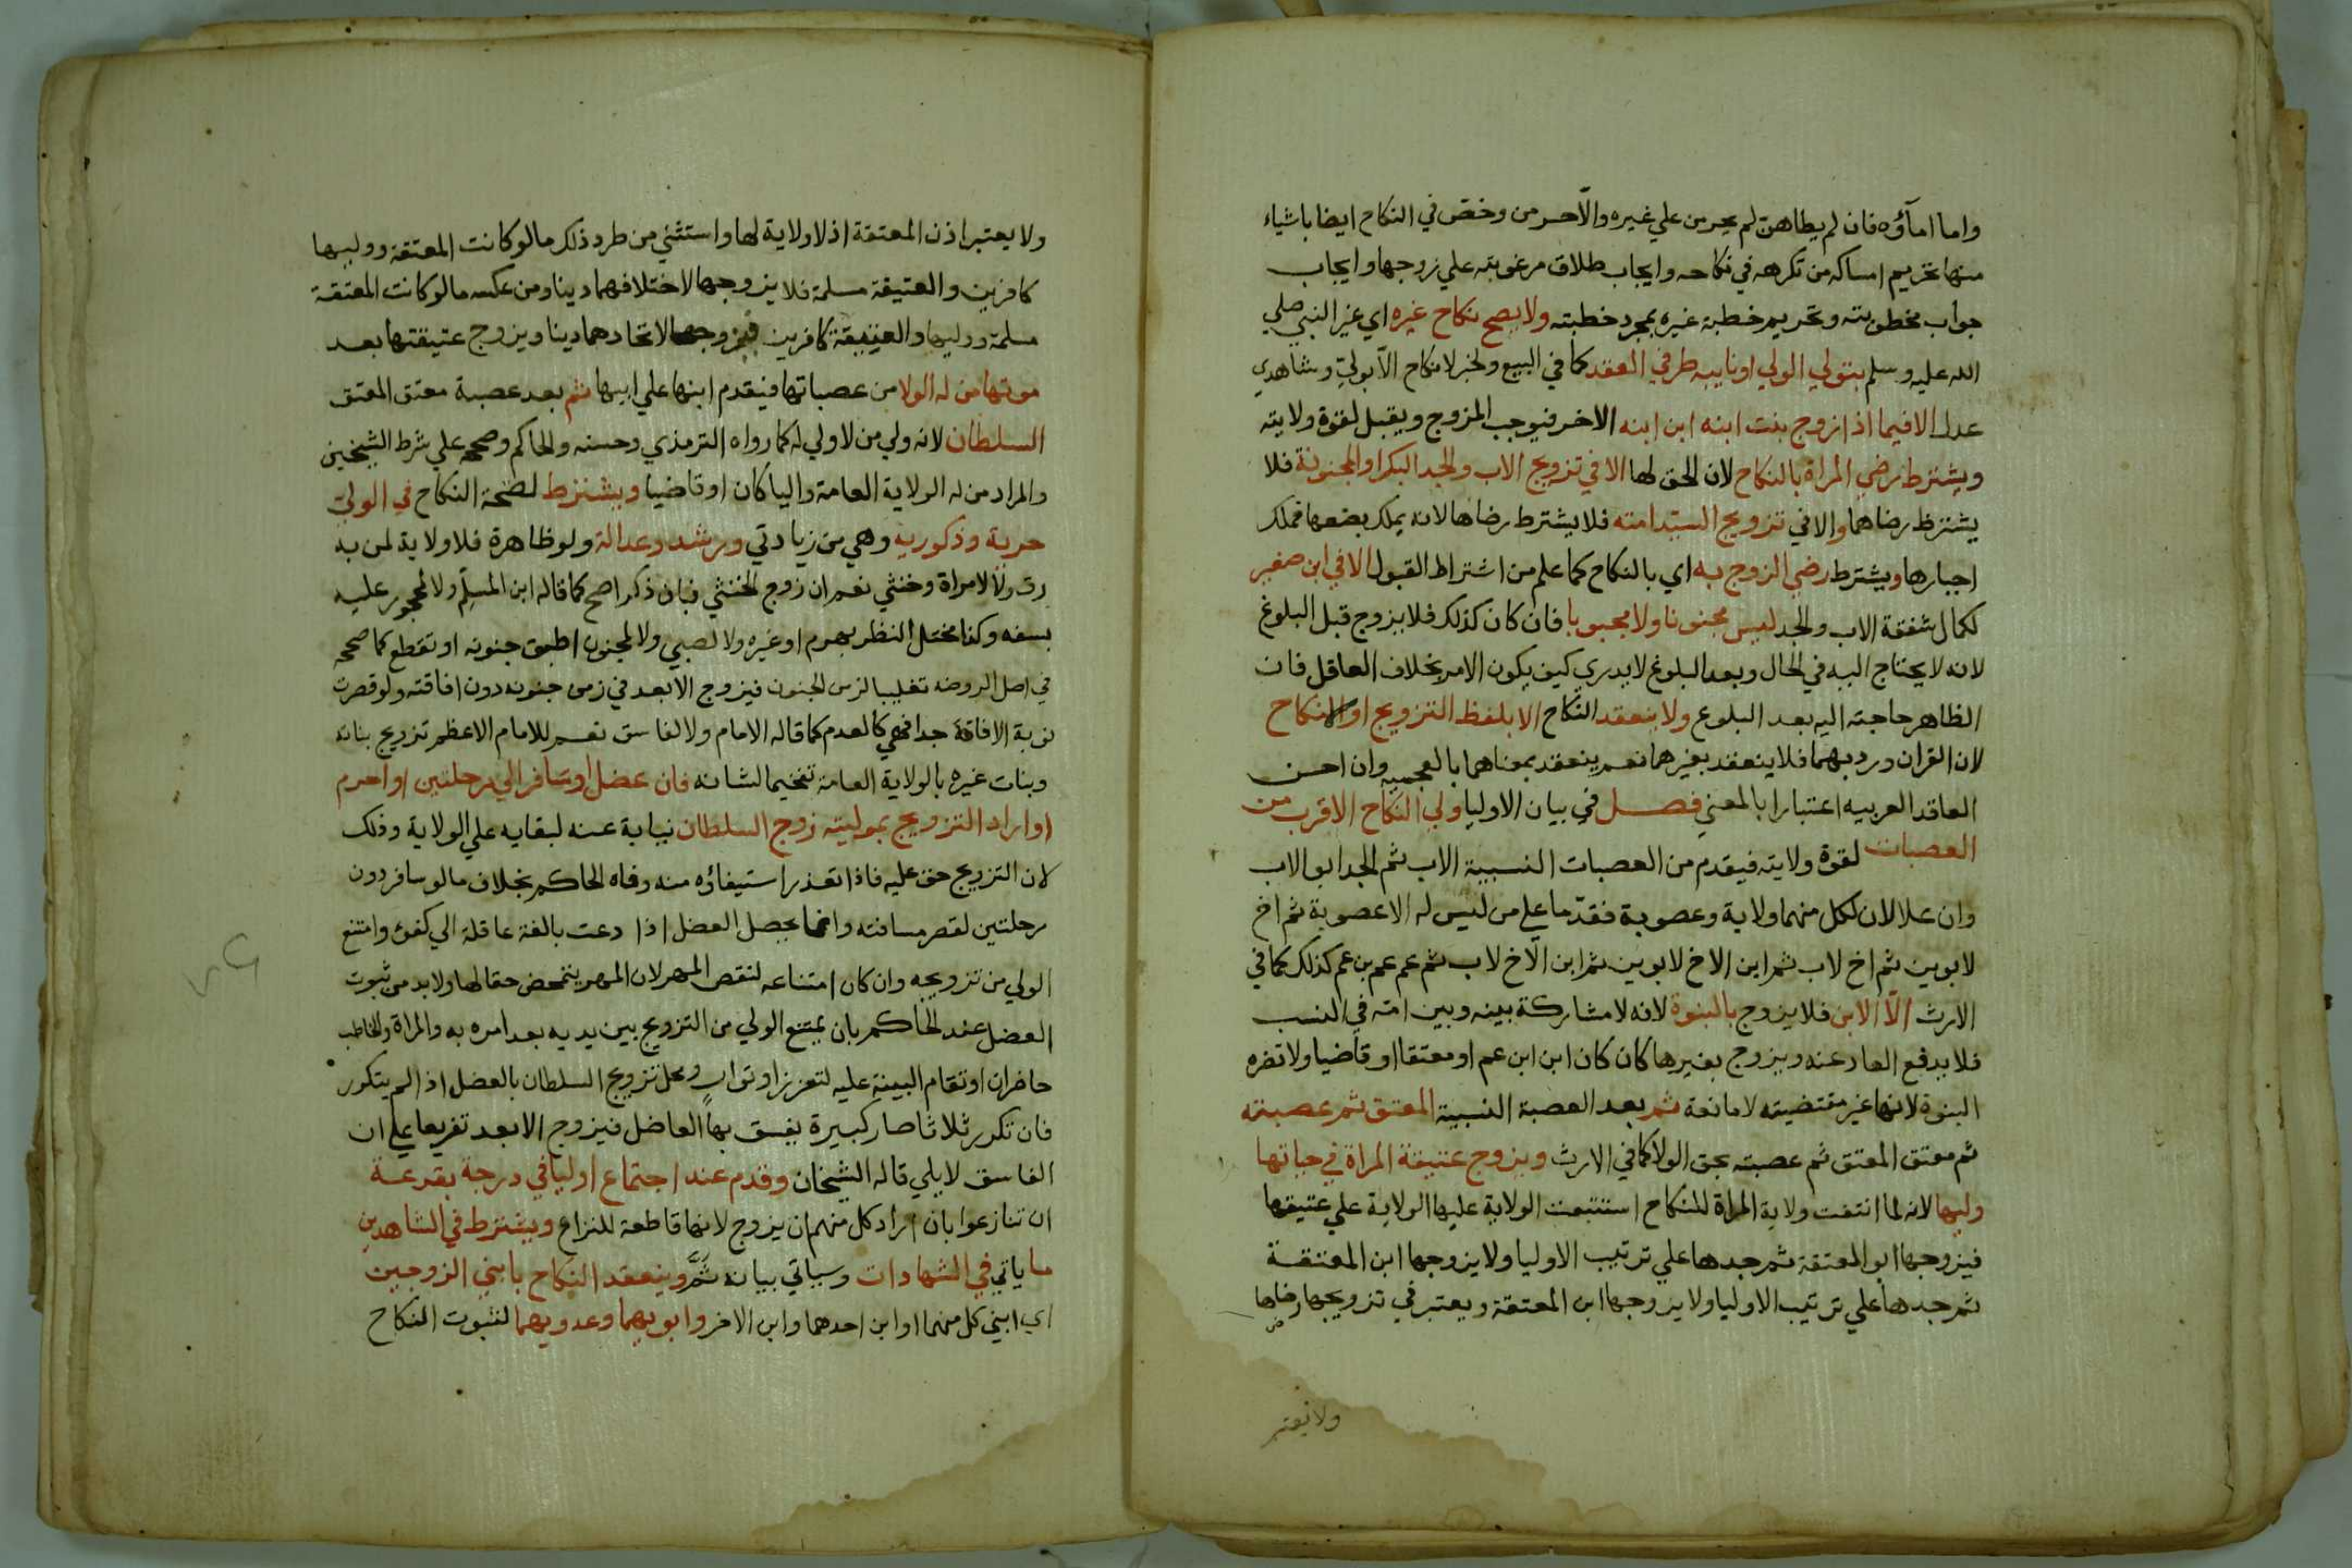 واما امآؤه فان لم يطاهن لم يحرمن علي غيره والّا حرمن وخصّ في النكاح ايضا باشياء
منها تحريم امساكه من تكرهه في نكاحه وايجاب طلاق مرغوبته علي زوجها وايجاب
جواب مخطوبته وتحريم خطبة غيره بمجرد خطبته ولا يصح نكاح غيره اي غير النبي صلي
الله عليه وسلم بتولي الولي او نايبه طرفي العقد كما في البيع ولخبر لا نكاح الّا بولي وشاهدي
عدل الا فيما اذا زوج بنت ابنه ابن ابنه الاخر فيوجب المزوج ويقبل لقوة ولايته
ويشترط رضي المراة بالنكاح لان الحق لها الا في تزويج الاب والجد البكر او المجنونة فلا
يشترط رضاهما والا في تزويج السيّد امته فلا يشترط رضاها لانه يملك بضعها فملك
اجبارها ويشترط رضي الزوج به اي بالنكاح كما علم من اشتراط القبول الا في ابن صغير
لكمال شفقة الاب والجد ليس مجنونا ولا مجبوبا فان كان كذلك فلا يزوج قبل البلوغ
لانه لا يحتاج اليه في الحال وبعد البلوغ لا يدري كيف يكون الامر بخلاف العاقل فان
الظاهر حاجته اليه بعد البلوغ ولا ينعقد النكاح الا بلفظ التزويج او النكاح
لان القران ورد بهما فلا ينعقد بغيرهما نعم ينعقد بمعناهما بالعجميه وان احسن
العاقد العربيه اعتبارا بالمعني فصل في بيان الاوليا ولي النكاح الاقرب من
العصبات لقوة ولايته فيقدم من العصبات النسبية الاب ثم الجد ابو الاب
وان علا لان لكل منهما ولاية وعصوبة فقدّما علي من ليس له الا عصوبة ثم اخ
لابوين ثم اخ لاب ثم ابن الاخ لابوين ثم ابن الاخ لاب ثم عم عم بن عم كذلك كما في
الارث الّا الابن فلا يزوج بالبنوة لانه لا مشاركة بينه وبين امّه في النسب
فلا يدفع العار عنه ويزوج بغيرها كان كان ابن ابن عم او معتقا او قاضيا ولا تضره
البنوة لانها غير مقتضيته لا مانعة ثم بعد العصبة النسبية المعتق ثم عصبته
ثم معتق المعتق ثم عصبته بحق الولا كما في الارث ويزوج عتيقة المراة في حياتها
وليها لانه لما انتفت ولاية المراة للنكاح استتبعت الولاية عليها الولاية علي عتيقها
فيزوجها ابو المعتقة ثم جدها علي ترتيب الاوليا ولا يزوجها ابن المعتقة
ثم جدها علي ترتيب الاوليا ولا يزوجها ابن المعتقة ويعتبر في تزويجها رضاها
ولا يعتبر
ولا يعتبر اذن المعتقة اذ لا ولاية لها واستثني من طرد ذلك ما لو كانت المعتقة ووليها
كافرين والعتيقة مسلمة فلا يزوجها لاختلافهما دينا ومن عكسه ما لو كانت المعتقة
مسلمة ووليها والعتيقة كافرين فيزوجها لاتحادهما دينا ويزوج عتيقتها بعد
موتها من له الولا من عصباتها فيقدم ابنها علي ابيها ثم بعد عصبة معتق المعتق
السلطان لانه ولي من لا ولي له كما رواه الترمذي وحسنه والحاكم وصححه علي شرط الشيخين
والمراد من له الولاية العامة واليا كان او قاضيا ويشترط لصحة النكاح في الولي
حرية وذكوريه وهي من زيادتي ورشد وعدالة ولو ظاهرة فلا ولاية لمن به
رق ولا لامراة وخنثي نعم ان زوج الخنثي فبان ذكرا صح كما قاله ابن المسلم ولا لمحجور عليه
بسفه وكذا مختل النظر بهرم او غيره ولا لصبي ولا لمجنون اطبق جنونه او تقطع كما صححه
في اصل الروضه تغليبا لزمن الجنون فيزوج الابعد في زمن جنونه دون افاقته ولو قصرت
نوبة الافاقة جدا فهي كالعدم كما قاله الامام ولا لفاسق نعم للامام الاعظم تزويج بناته
وبنات غيره بالولاية العامة تفخيما لشانه فان عضل او سافر الي مرحلتين او احرم
او اراد التزويج بموليته زوج السلطان نيابة عنه لبقايه علي الولاية وذلك
لان التزويج حق عليه فاذا تعذر استيفاؤه منه وفاه الحاكم بخلاف ما لو سافر دون
مرحلتين لقصر مسافته وانما يحصل العضل اذا دعت بالغة عاقلة الي كفئ وامتنع
الولي من تزويجه وان كان امتناعه لنقص المهر لان المهر يتمحض حقا لها ولا بد من ثبوت
العضل عند الحاكم بان يمتنع الولي من التزويج بين يديه بعد امره به والمراة والخاطب
حاضران او تقام البينة عليه لتعزز او توارٍ ومحل تزويج السلطان بالعضل اذا لم يتكرر
فان تكرر ثلاثا صار كبيرة يفسق بها العاضل فيزوج الابعد تفريعا علي ان
الفاسق لا يلي قاله الشيخان وقدم عند اجتماع اوليا في درجة بقرعة
ان تنازعوا بان اراد كل منهم ان يزوج لانها قاطعة للنزاع ويشترط في الشاهدين
ما ياتي في الشهادات وسياتي بيانه ثَمَّ وينعقد النكاح بابني الزوجين
اي ابني كل منهما او ابن احدهما وابن الاخر وابويهما وعدويهما لثبوت النكاح